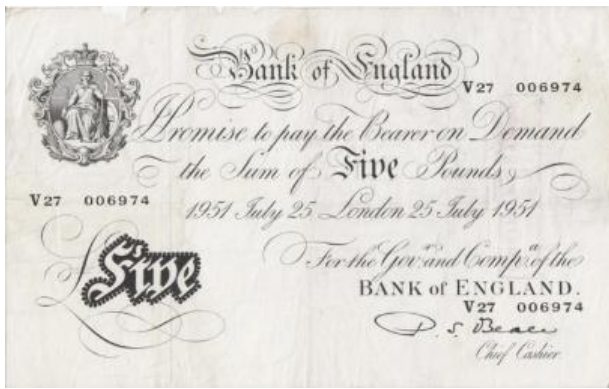 Bank of England
V27 006974
I Promise to pay the Bearer on Demand
the Sum of Five Pounds
V27 006974
1951 July 25 London 25 July 1951
For the Govr. and Compa. of the
£Five
BANK of ENGLAND.
V27 006974
P. S. Beale
Chief Cashier.